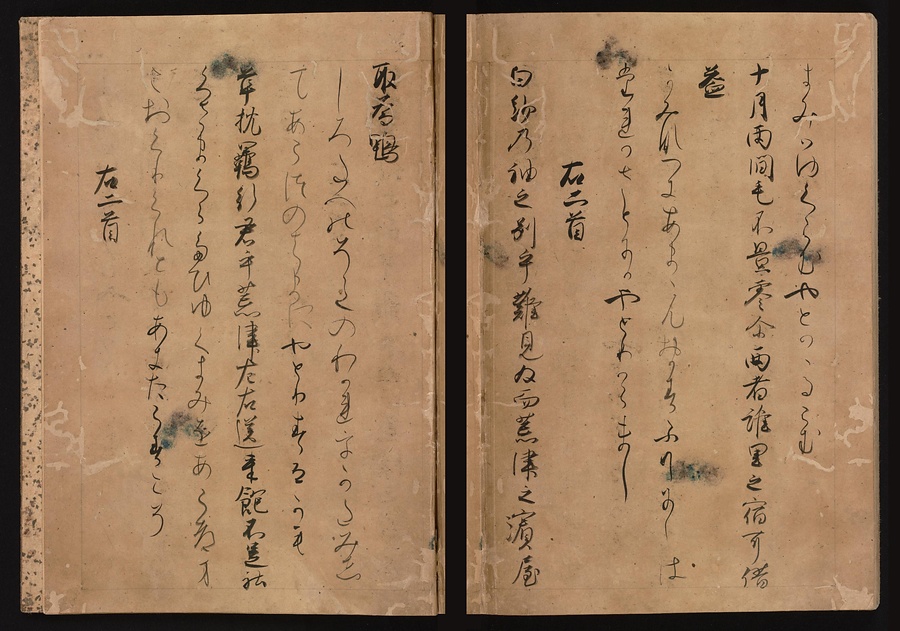 きみかゆくらむやとかるらむ
十月雨間毛不置零尓西者誰里之宿可借
益
かみなつきあままもおかすふりにしは
たれかさとにかやとからまし
右二首
白紗乃袖之別乎難見為而荒津之濱屋
取為鴨
しろたへのそてのわかれをかたみし
てあらつのはまにやとりするかも
草枕羈行君乎荒津左右送来飽不足社
くさまくらたひゆくきみをあらつま
ておくりくれともあきたらすこそ
右二首